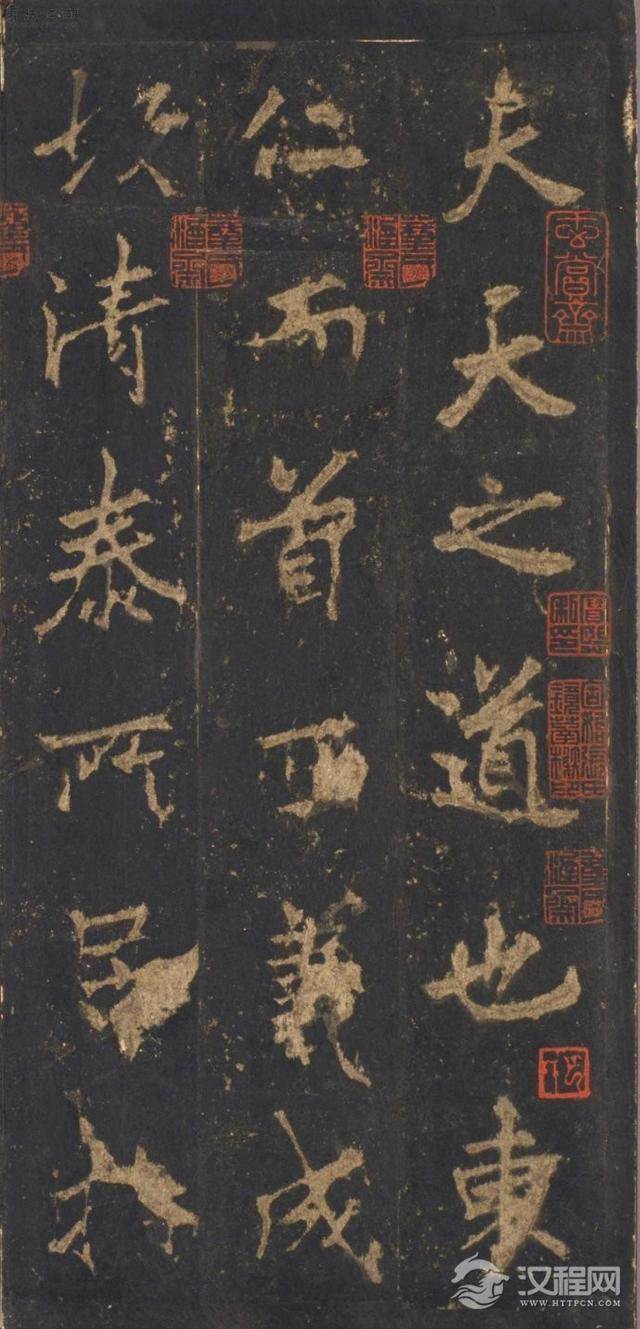 夫天之道也東
仁而首西義成
故清泰所居
汉程网
WWW.HTTPCN.COM